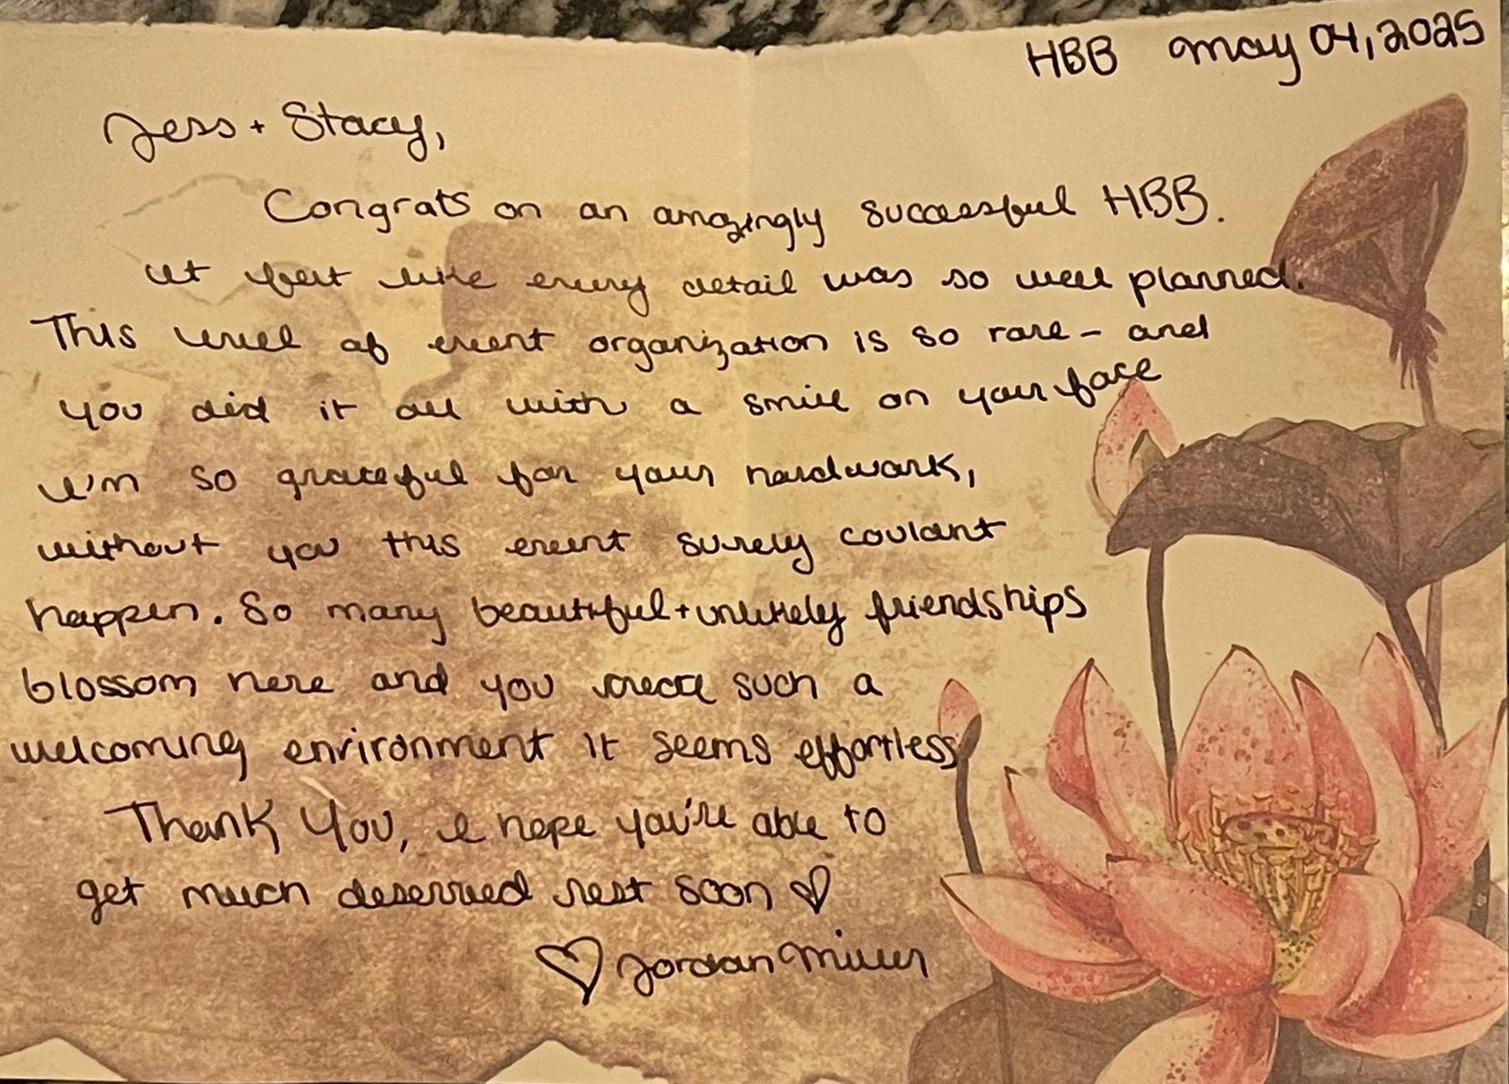 HBB May 04, 2025
Jess + Stacy,
Congrats on an amazingly successful HBB.
It felt like every detail was so well planned.
This level of event organization is so rare – and
you did it all with a smile on your face
I'm so grateful for your hardwork,
without you this event surely couldnt
happen. So many beautiful + unlikely friendships
blossom here and you create such a
welcoming environment it seems effortless
Thank You, I hope you're able to
get much deserved rest soon ♡
♡ Jordan Miller